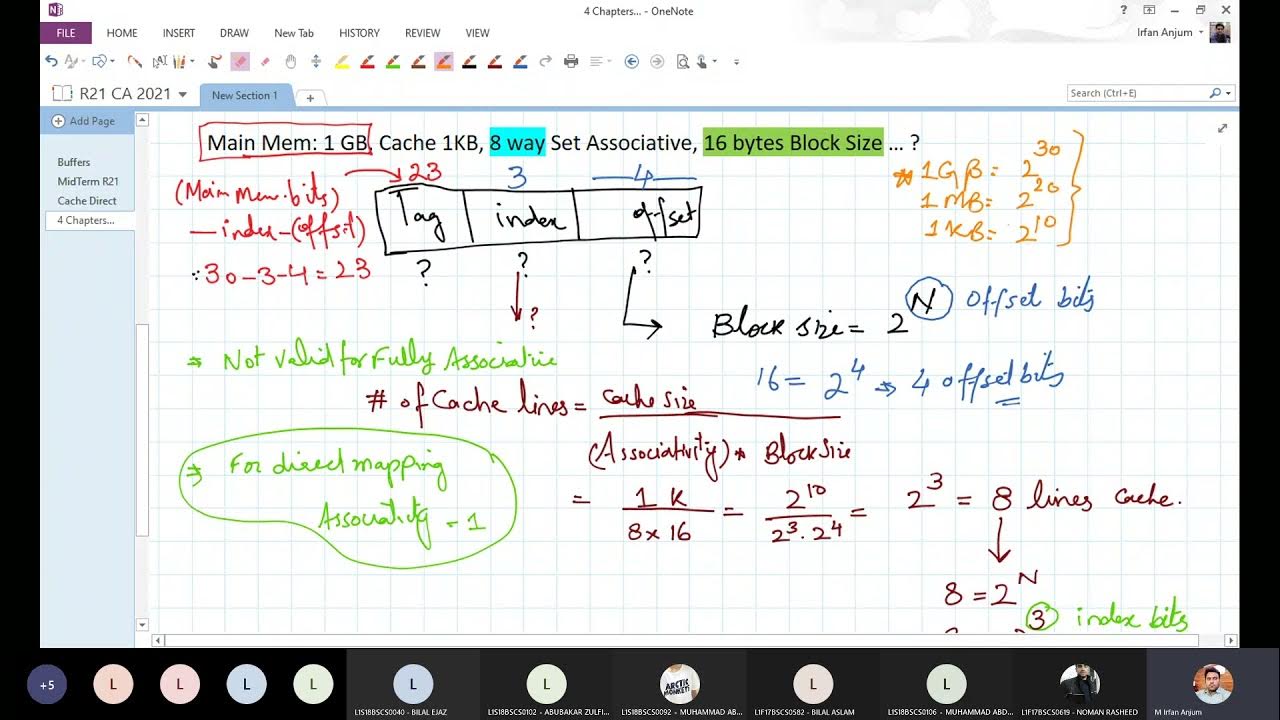 4 Chapters... - OneNote
FILE HOME INSERT DRAW New Tab HISTORY REVIEW VIEW
Irfan Anjum
R21 CA 2021
New Section 1
Search (Ctrl+E)
Add Page
Buffers
MidTerm R21
Cache Direct
4 Chapters...
Main Mem: 1 GB, Cache 1KB, 8 way Set Associative, 16 bytes Block Size ... ?
1GB = 2^30
1MB = 2^20
1KB = 2^10
23 3 4
Tag index offset
? ? ?
?
(Main Mem. bits)
— index - (offset)
∵ 30-3-4 = 23
Block size = 2^N offset bits
16 = 2^4 ⇒ 4 offset bits
⇒ Not Valid for Fully Associative
# of Cache lines = cache size
(Associativity) * Block Size
= 1 K / 8 x 16 = 2^10 / 2^3 . 2^4 = 2^3 = 8 lines cache.
⇒ For direct mapping
Associativity = 1
8 = 2^N
3 index bits
+5
L L L L L L L L
L1S18BSCS0040 - BILAL EJAZ
L1S18BSCS0102 - ABUBAKAR ZULFI...
ARCTIC MONKEYS
L1S18BSCS0092 - MUHAMMAD AB...
L1F17BSCS0582 - BILAL ASLAM
L1S18BSCS0106 - MUHAMMAD ABD...
L1F17BSCS0619 - NOMAN RASHEED
M Irfan Anjum